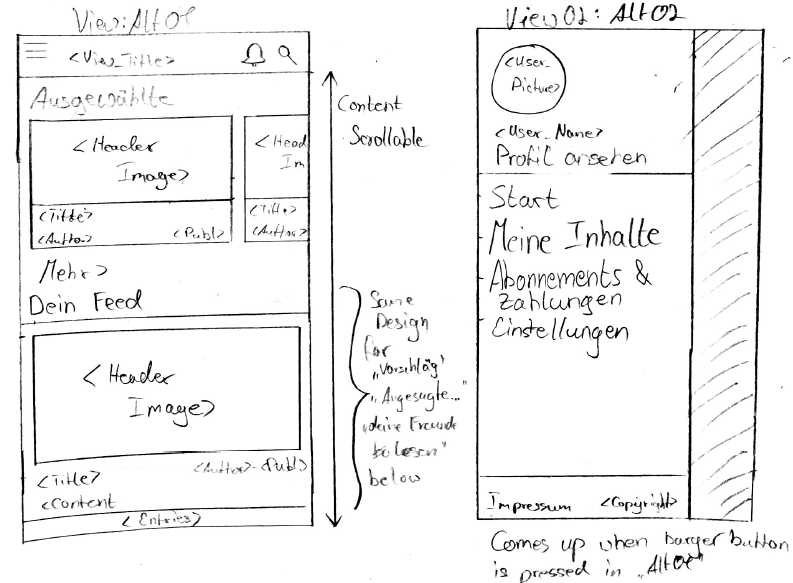 View: Alt01
<View_Title>
Ausgewählte
<Header
Image>
<Head
Im
<Title>
<Author>
<Publ>
<Title>
<Author>
Mehr>
Dein Feed
<Header
Image>
<Title>
<Author>-<Publ>
<Content
<Entries>
Content
Scrollable
Same
Design
for
"Vorschläg'
"Angesagte..."
"deine Freunde
below
View02: Alt02
<User_
Picture>
<User_Name>
Profil ansehen
Start
Meine Inhalte
Abonnements &
Zahlungen
Einstellungen
Impressum
<Copyright>
Comes up when burger button
is pressed in "Alt01"